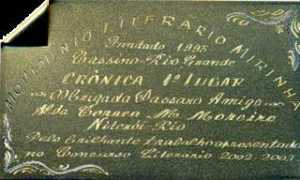 MOVIMENTO LITERARIO MIRINHA
Fundado 1995
Cassino-Rio Grande
CRÔNICA 1º LUGAR
Obrigada Passaro Amigo
Alda Corrêa Mª Moreira
Niterói-Rio
Pelo brilhante trabalho apresentado
no Concurso Literário 2002-2003